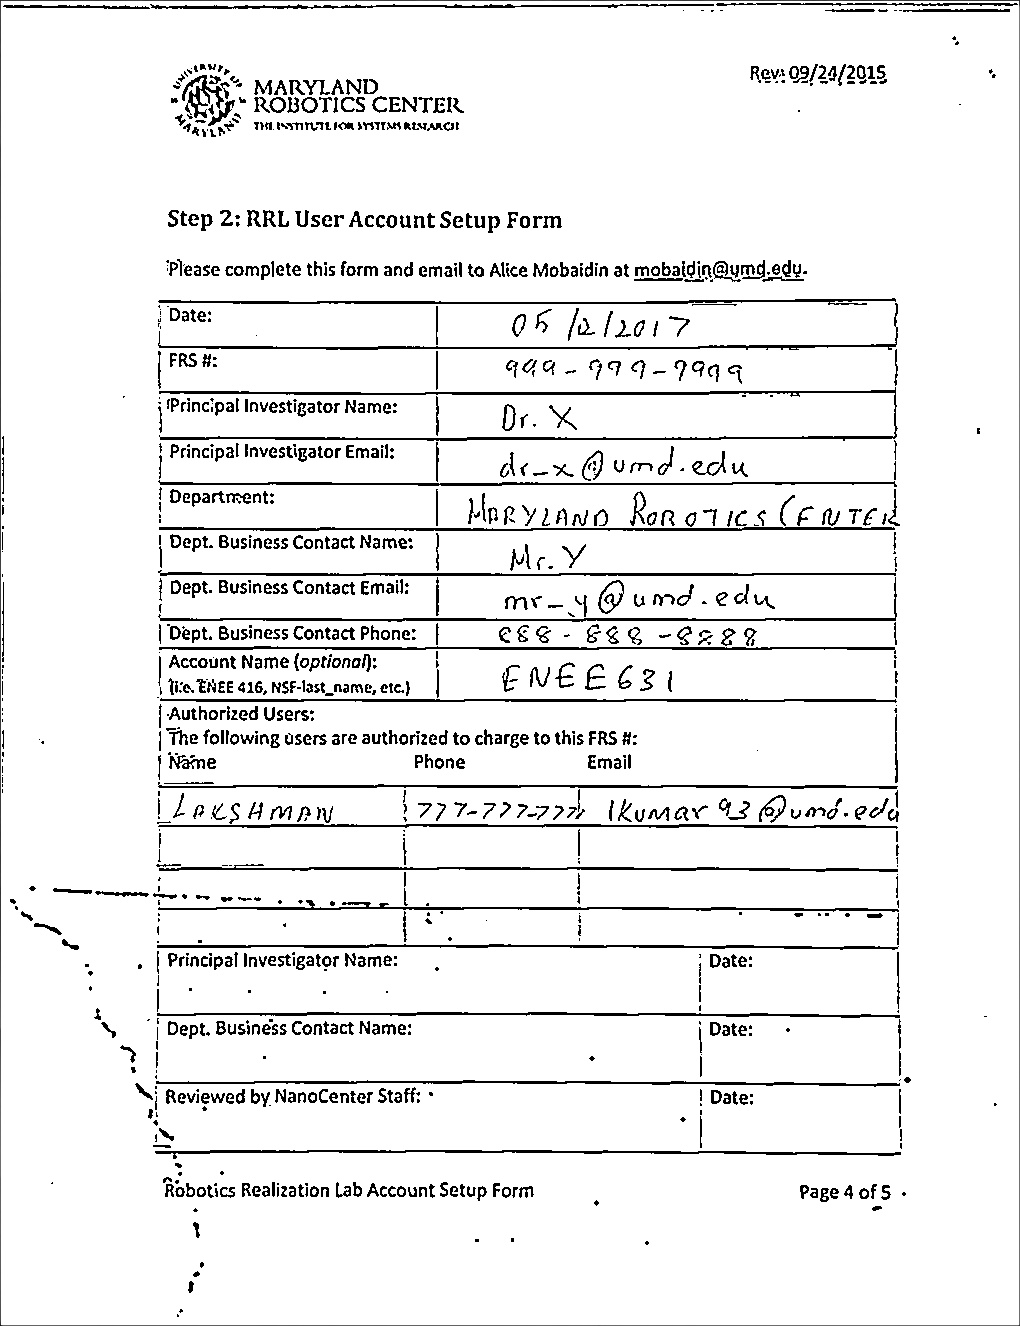 UNIVERSITY OF MARYLAND
MARYLAND
ROBOTICS CENTER
THE INSTITUTE FOR SYSTEMS RESEARCH
Rev: 09/24/2015
Step 2: RRL User Account Setup Form
Please complete this form and email to Alice Mobaidin at mobaidin@umd.edu.
Date: 05/2/2017
FRS #: 999-999-9999
Principal Investigator Name: Dr. X
Principal Investigator Email: dr-x@umd.edu
Department: MARYLAND ROBOTICS CENTER
Dept. Business Contact Name: Mr. Y
Dept. Business Contact Email: mr-y@umd.edu
Dept. Business Contact Phone: 888-888-8888
Account Name (optional): ENEE631
(i.e. ENEE 416, NSF-last_name, etc.)
Authorized Users:
The following users are authorized to charge to this FRS #:
Name Phone Email
LAKSHMAN 777-777-777 lkumar93@umd.edu
Principal Investigator Name: Date:
Dept. Business Contact Name: Date:
Reviewed by NanoCenter Staff: Date:
Robotics Realization Lab Account Setup Form Page 4 of 5